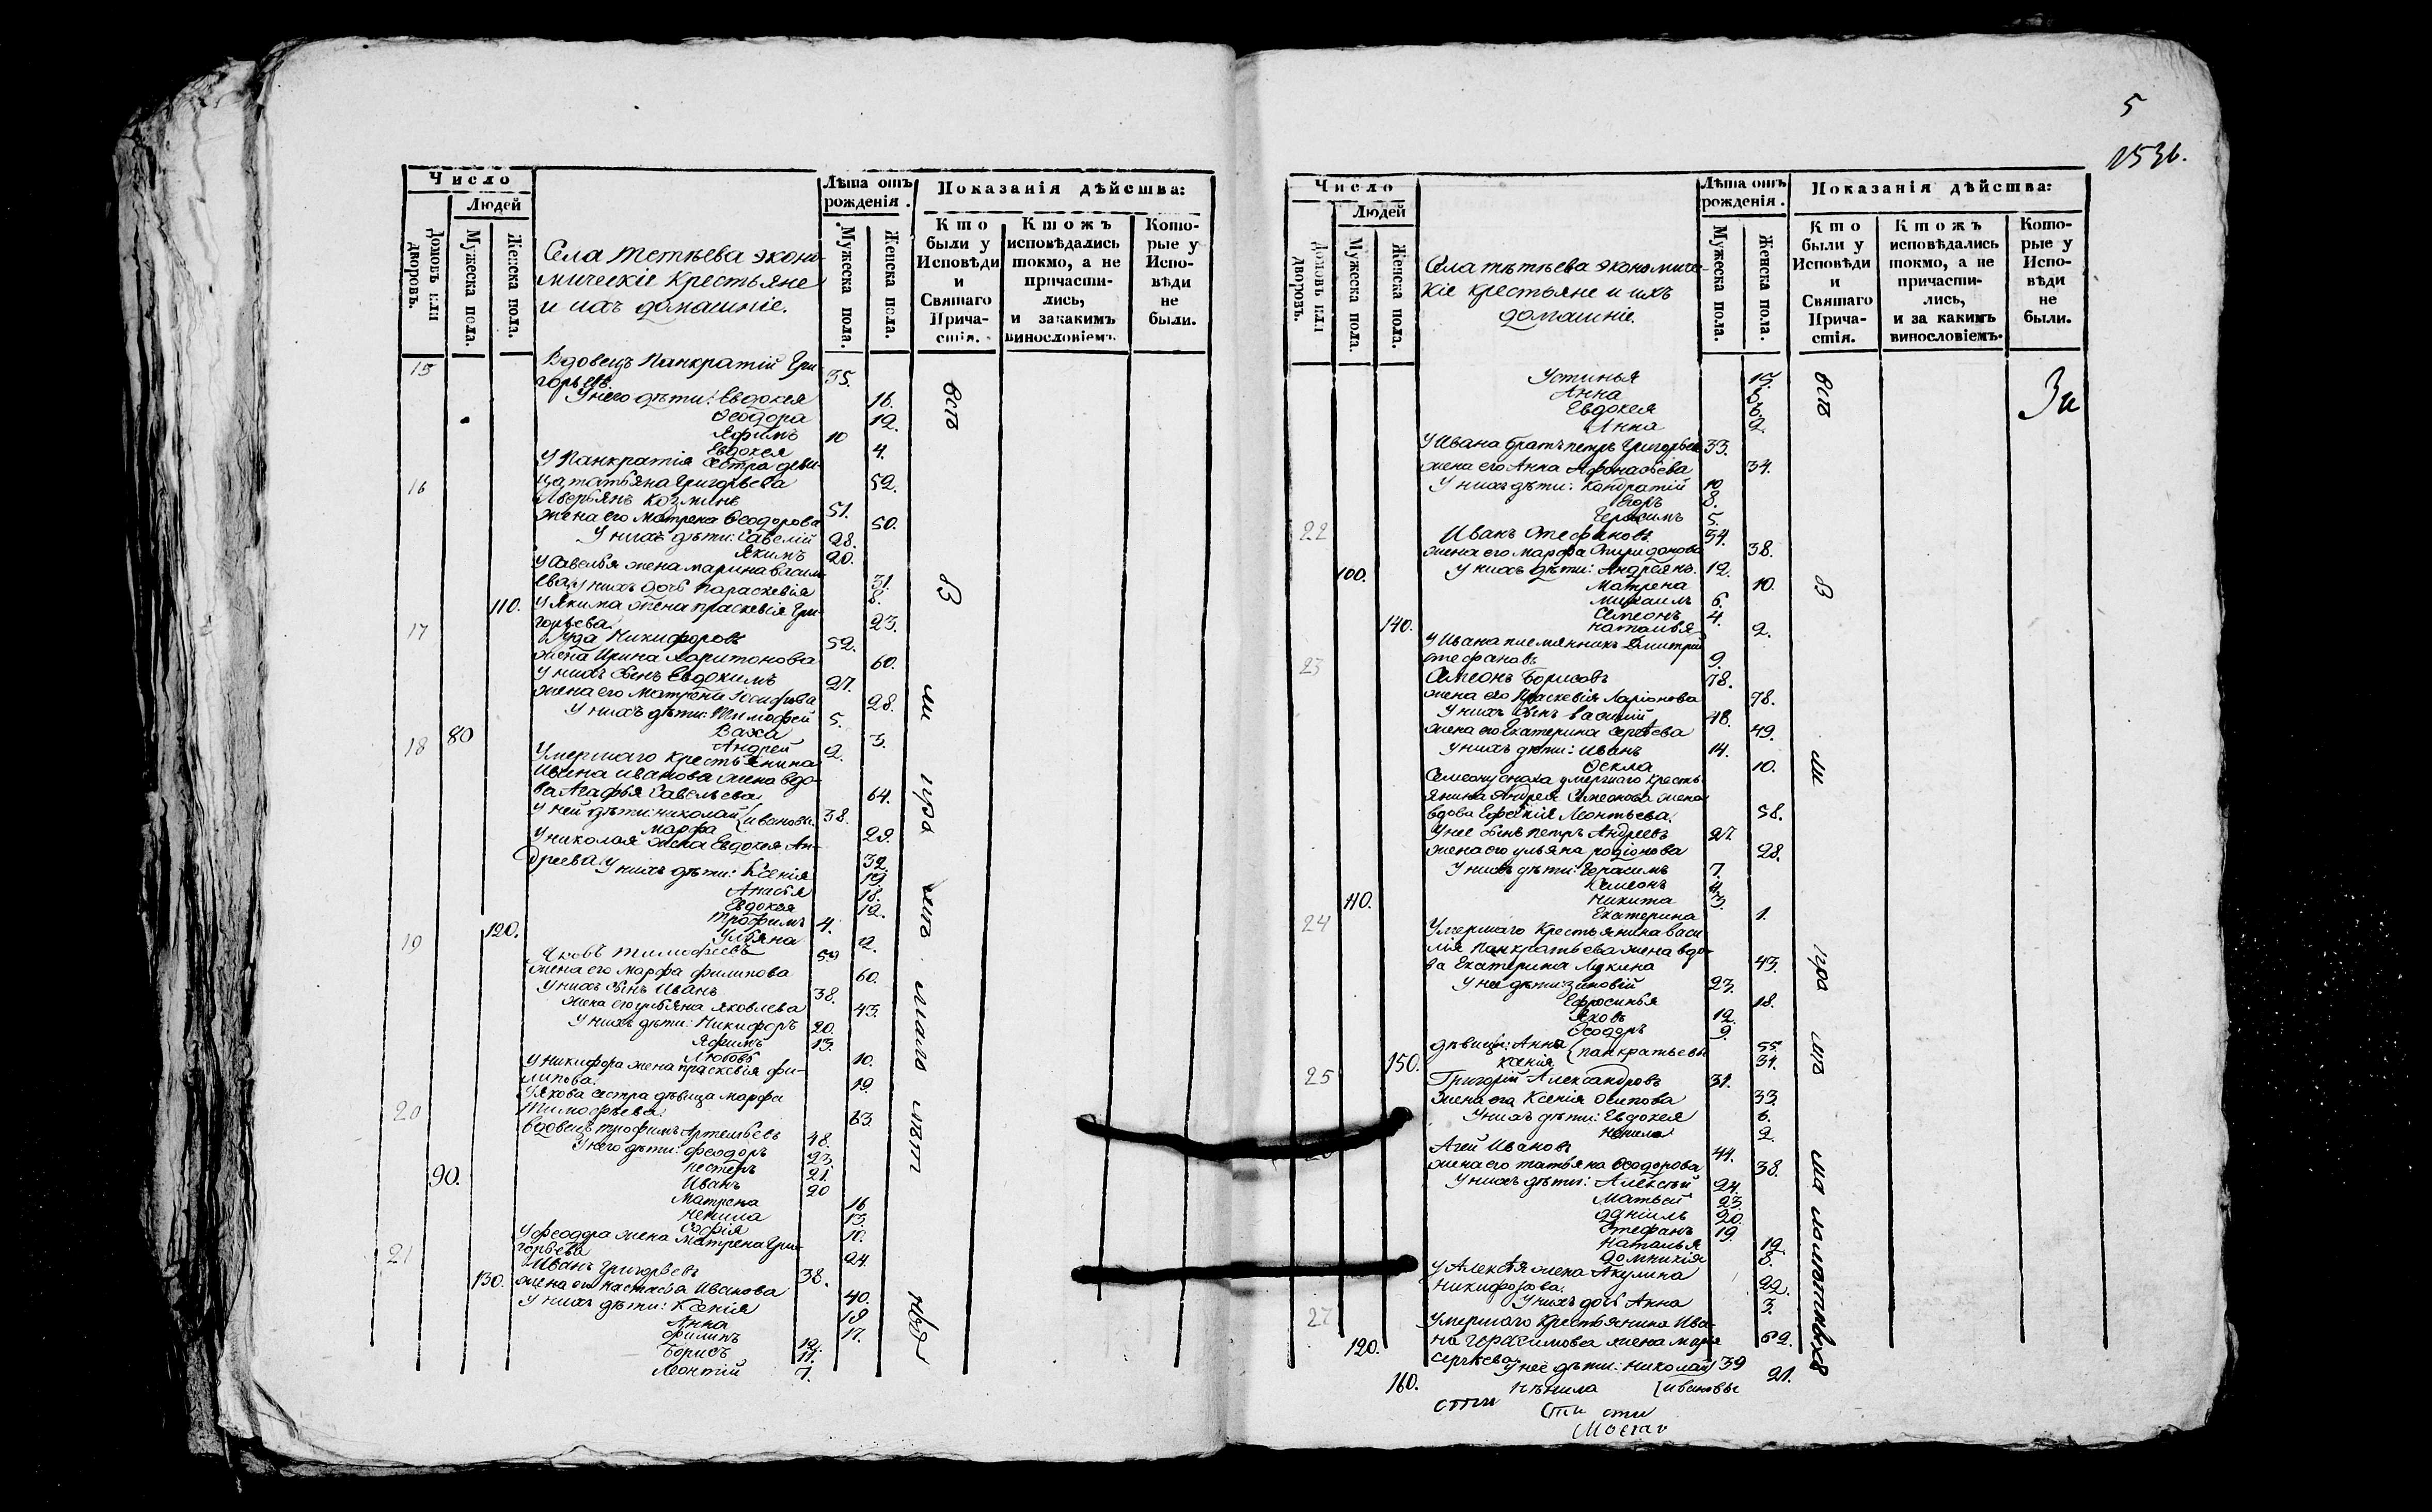 Число
Людей
Домовъ или дворовъ.
Мужеска пола.
Женска пола.
Села Тетъева эконо-
мическіе крестьяне
и ихъ домашніе.
Лѣта отъ рожденія.
Мужеска пола.
Женска пола.
Показанія дѣйства:
Кто были у Исповѣди и Святаго Причастія.
Ктожъ исповѣдались токмо, а не причасти-лись, и закакимъ винословіемъ.
Кото-рые у Испо-вѣди не были.
15 Вдовецъ Панкратій Гри-
горьевъ 35.
У него дѣти: Евдокея 16.
Ѳеодора 12.
Яфимъ 10
Евдокея 4.
У Панкратія сестра деви-
ца татьяна Григорьева 52.
16 Аверьянъ Козминъ 51.
жена его Матрена Ѳеодорова 50.
У нихъ дѣти: Савелій 28.
Якимъ 20.
У Савелья жена марина васил-
ева, у нихъ дочь Параскевія 31.
8.
110. У Якима жена праскевія Гри-
горьева 23.
17 Іуда Никифоровъ 52.
жена Ирина Харитонова 60.
У нихъ сынъ Евдокимъ 27.
жена его Матрена Іосифова 28.
У нихъ дѣти: Тимофей 5.
Васса 3.
80 Андрей 2.
18 Умершаго крестьянина
Ивана иванова жена вдо-
ва Агафья Савельева 64.
У ней дѣти: николай {ивановы. 38.
Марфа 29.
У николая жена Евдокея Ан-
дреева 32.
У нихъ дѣти: Ксенія 19.
Анисья 18.
Евдокея 12.
Трофимъ 4.
120. Ульяна 2.
19 Яковъ Тимофеевъ 59
жена его марфа филипова 60.
У нихъ сынъ Иванъ 38.
жена его ульяна яковлева 43.
У нихъ дѣти: Никифоръ 20.
Яфимъ 13.
Любовь 10.
У никифора жена праскевія фи-
липова 19.
У якова сестра дѣвица марфа
Тимофѣева 63.
20 Вдовецъ трофимъ Артемьевъ 48.
У него дѣти: феодоръ 23.
Нестеръ 21.
90. Иванъ 20
Матрена 16
Ненила 13.
Софія 10.
У феодора жена Матрена Гри-
горьева 24.
21 Иванъ Григорьевъ 38.
130. жена его настасья Иванова 40.
У нихъ дѣти: Ксенія 18
Анна 17.
филипъ 12.
Борисъ 11.
Леонтій 7.
5
1536.
Число
Людей
Домовъ или дворовъ.
Мужеска пола.
Женска пола.
Села тѣтъева экономиче-
кіе крестьяне и ихъ
домашніе.
Лѣта отъ рожденія.
Мужеска пола.
Женска пола.
Показанія дѣйства:
Кто были у Исповѣди и Святаго Прича-стія.
Ктожъ исповѣдались токмо, а не причасти-лись, и за какимъ винословіемъ.
Кото-рые у Испо-вѣди не были.
Устинья 15.
Анна
Евдокея 6.
Анна 2.
У Ивана братъ петръ Григорьевъ 33.
жена его Анна Афонасьева 34.
У нихъ дѣти: Кондратій 10
Егоръ 8.
Герасимъ 5.
22 Иванъ Стефановъ 34.
жена его марфа Спиридонова 38.
100. У нихъ дѣти: Андреянъ. 12.
Матрена 10.
михаилъ 6.
Симеонъ 4.
140. Наталья 2.
У Ивана племянникъ Дмитрий
стефановъ 9.
23 Симеонъ Борисовъ 78.
жена его Праскевія Ларіонова 78.
У нихъ сынъ василій 48.
жена его Екатерина сергѣева 49.
У нихъ дѣти: Иванъ 14.
Ѳекла 10.
Симеону сноха умершаго кресть-
янина Андрея Симеонова жена
вдова Леонтьева. 58.
У нее сынъ петръ Андреевъ 27
жена его ульяна родіонова 28.
У нихъ дѣти: Герасимъ 7.
Симеонъ 4.
110. Никита 3.
Екатерина 1.
24 Умершаго Крестьянина васи-
лія Панкратьева жена вдо-
ва Екатерина Лукина 43.
У нее дѣти: зиновій 23.
Ефросинья 18.
Яковъ 12.
Ѳеодоръ 9.
дѣвицы: Анна {панкратьевы 55.
150. Ксенія 31.
25 Григорій Александровъ 31.
жена его Ксенія Осипова 33.
У нихъ дѣти: Евдокея 6.
Ненила 2.
Агей Ивановъ 44.
жена его татьяна Ѳеодорова 38.
У нихъ дѣти: Алексѣй 24.
Матвей 23.
Даніилъ 20.
Стефанъ 19.
Наталья 12.
Домникія 8.
У Алексѣя жена Акулина
Никифорова. 22.
У нихъ дочь Анна 3.
27 Умершаго крестьянина Ива-
120. на Герасимова жена марія 62.
сергѣева
У нее дѣти: Николай 39
160. Нѣнила {ивановы 21.